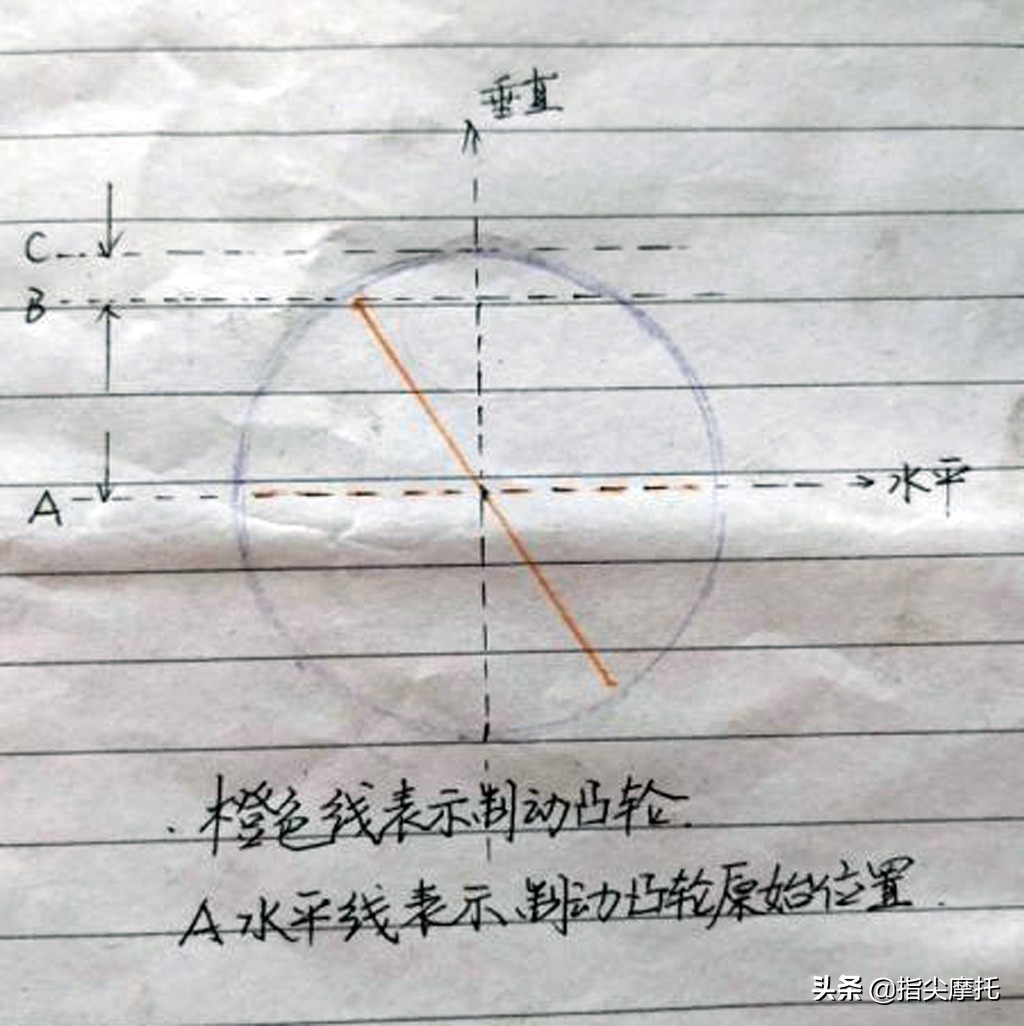 垂直
C
B
A
水平
.橙色线表示制动凸轮.
A水平线表示制动凸轮原始位置.
头条 @指尖摩托